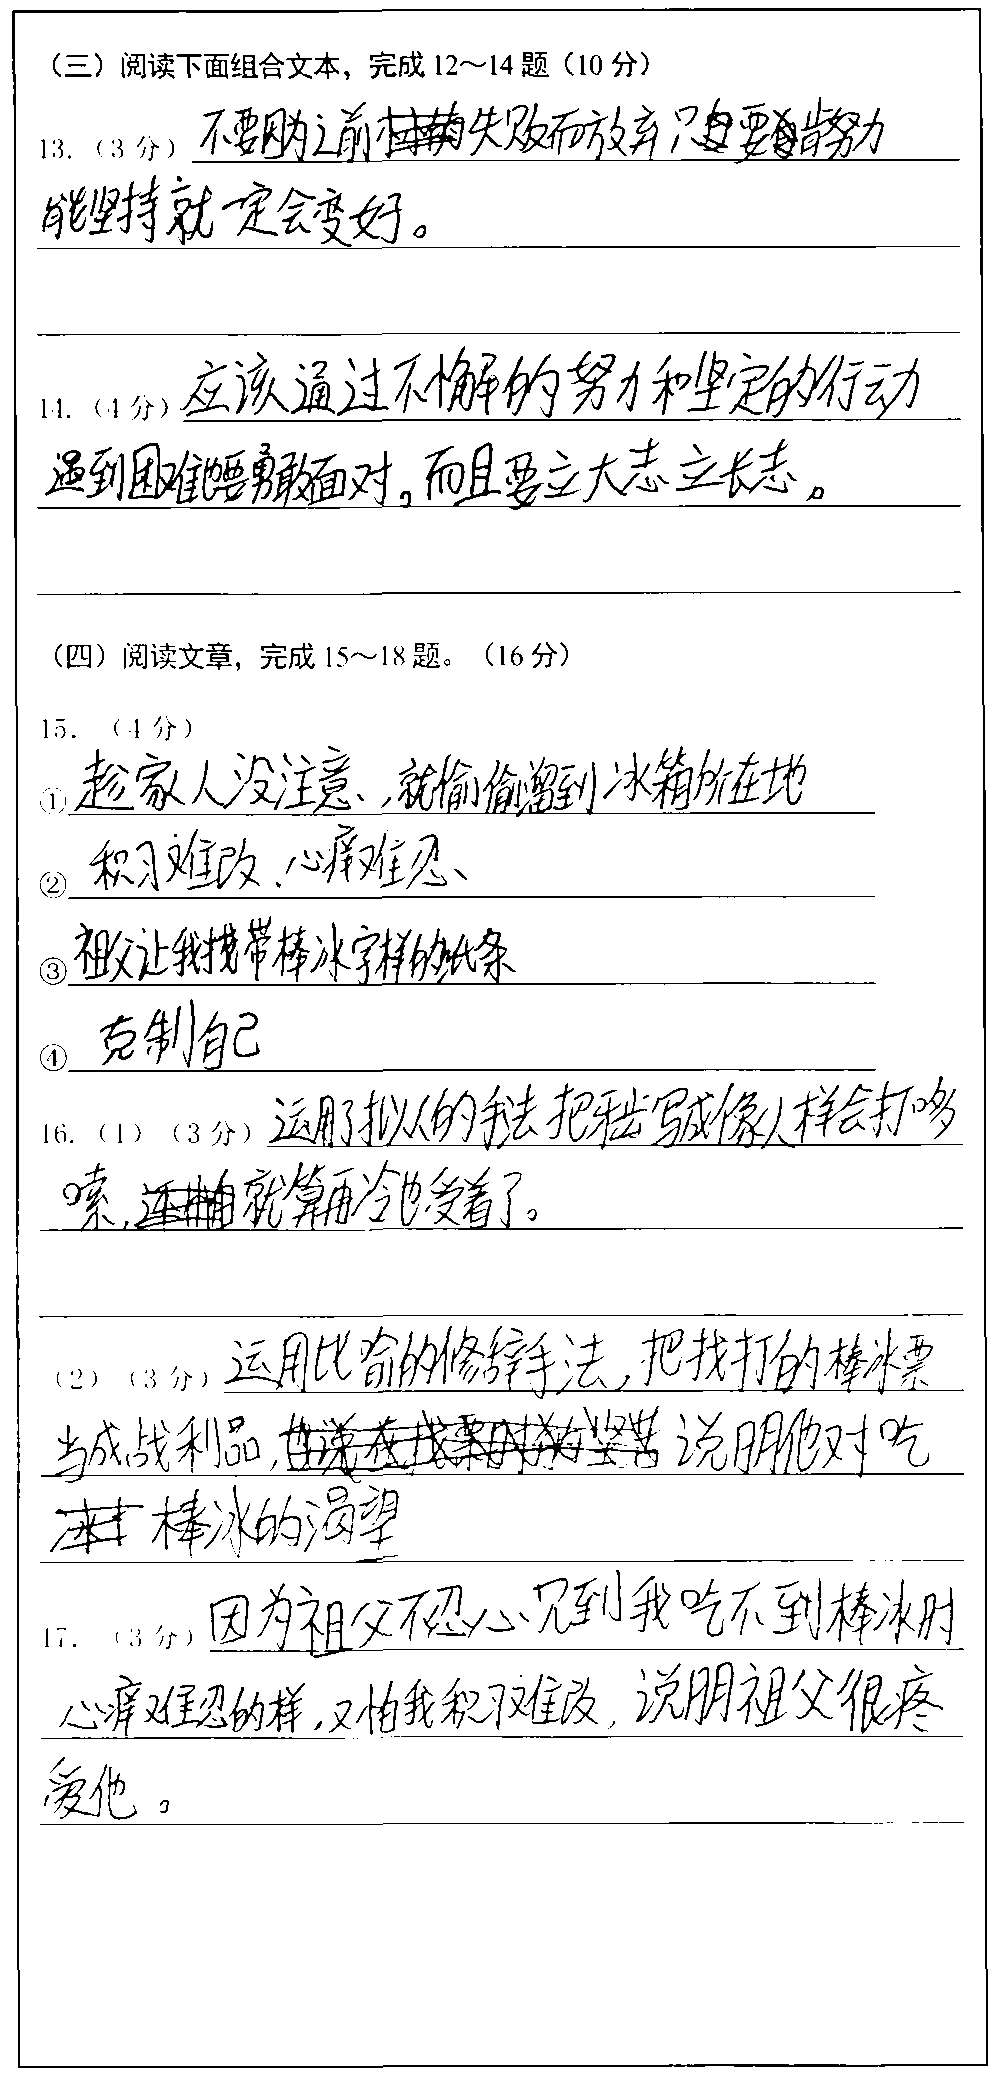 （三）阅读下面组合文本，完成12～14题（10分）
13.（3分）不要因为之前失败而放弃只要肯努力
能坚持就一定会变好。
14.（4分）应该通过不懈的努力和坚定的行动
遇到困难也要勇敢面对。而且要立大志立长志。
（四）阅读文章，完成15～18题。（16分）
15.（4分）
① 趁家人没注意、,就偷偷溜到冰箱所在地
② 积习难改、心痒难忍、
③ 祖父让我携带棒冰字样的纸条
④ 克制自己
16.（1）（3分）运用了拟人的手法把牙齿写成像人一样会打哆
嗦,就算再冷也受着了。
（2）（3分）运用比喻的修辞手法,把找打的棒冰票
当成战利品,说明他对吃
棒冰的渴望
17.（3分）因为祖父不忍心见到我吃不到棒冰时
心痒难忍的样,又怕我积习难改,说明祖父很疼
爱他。